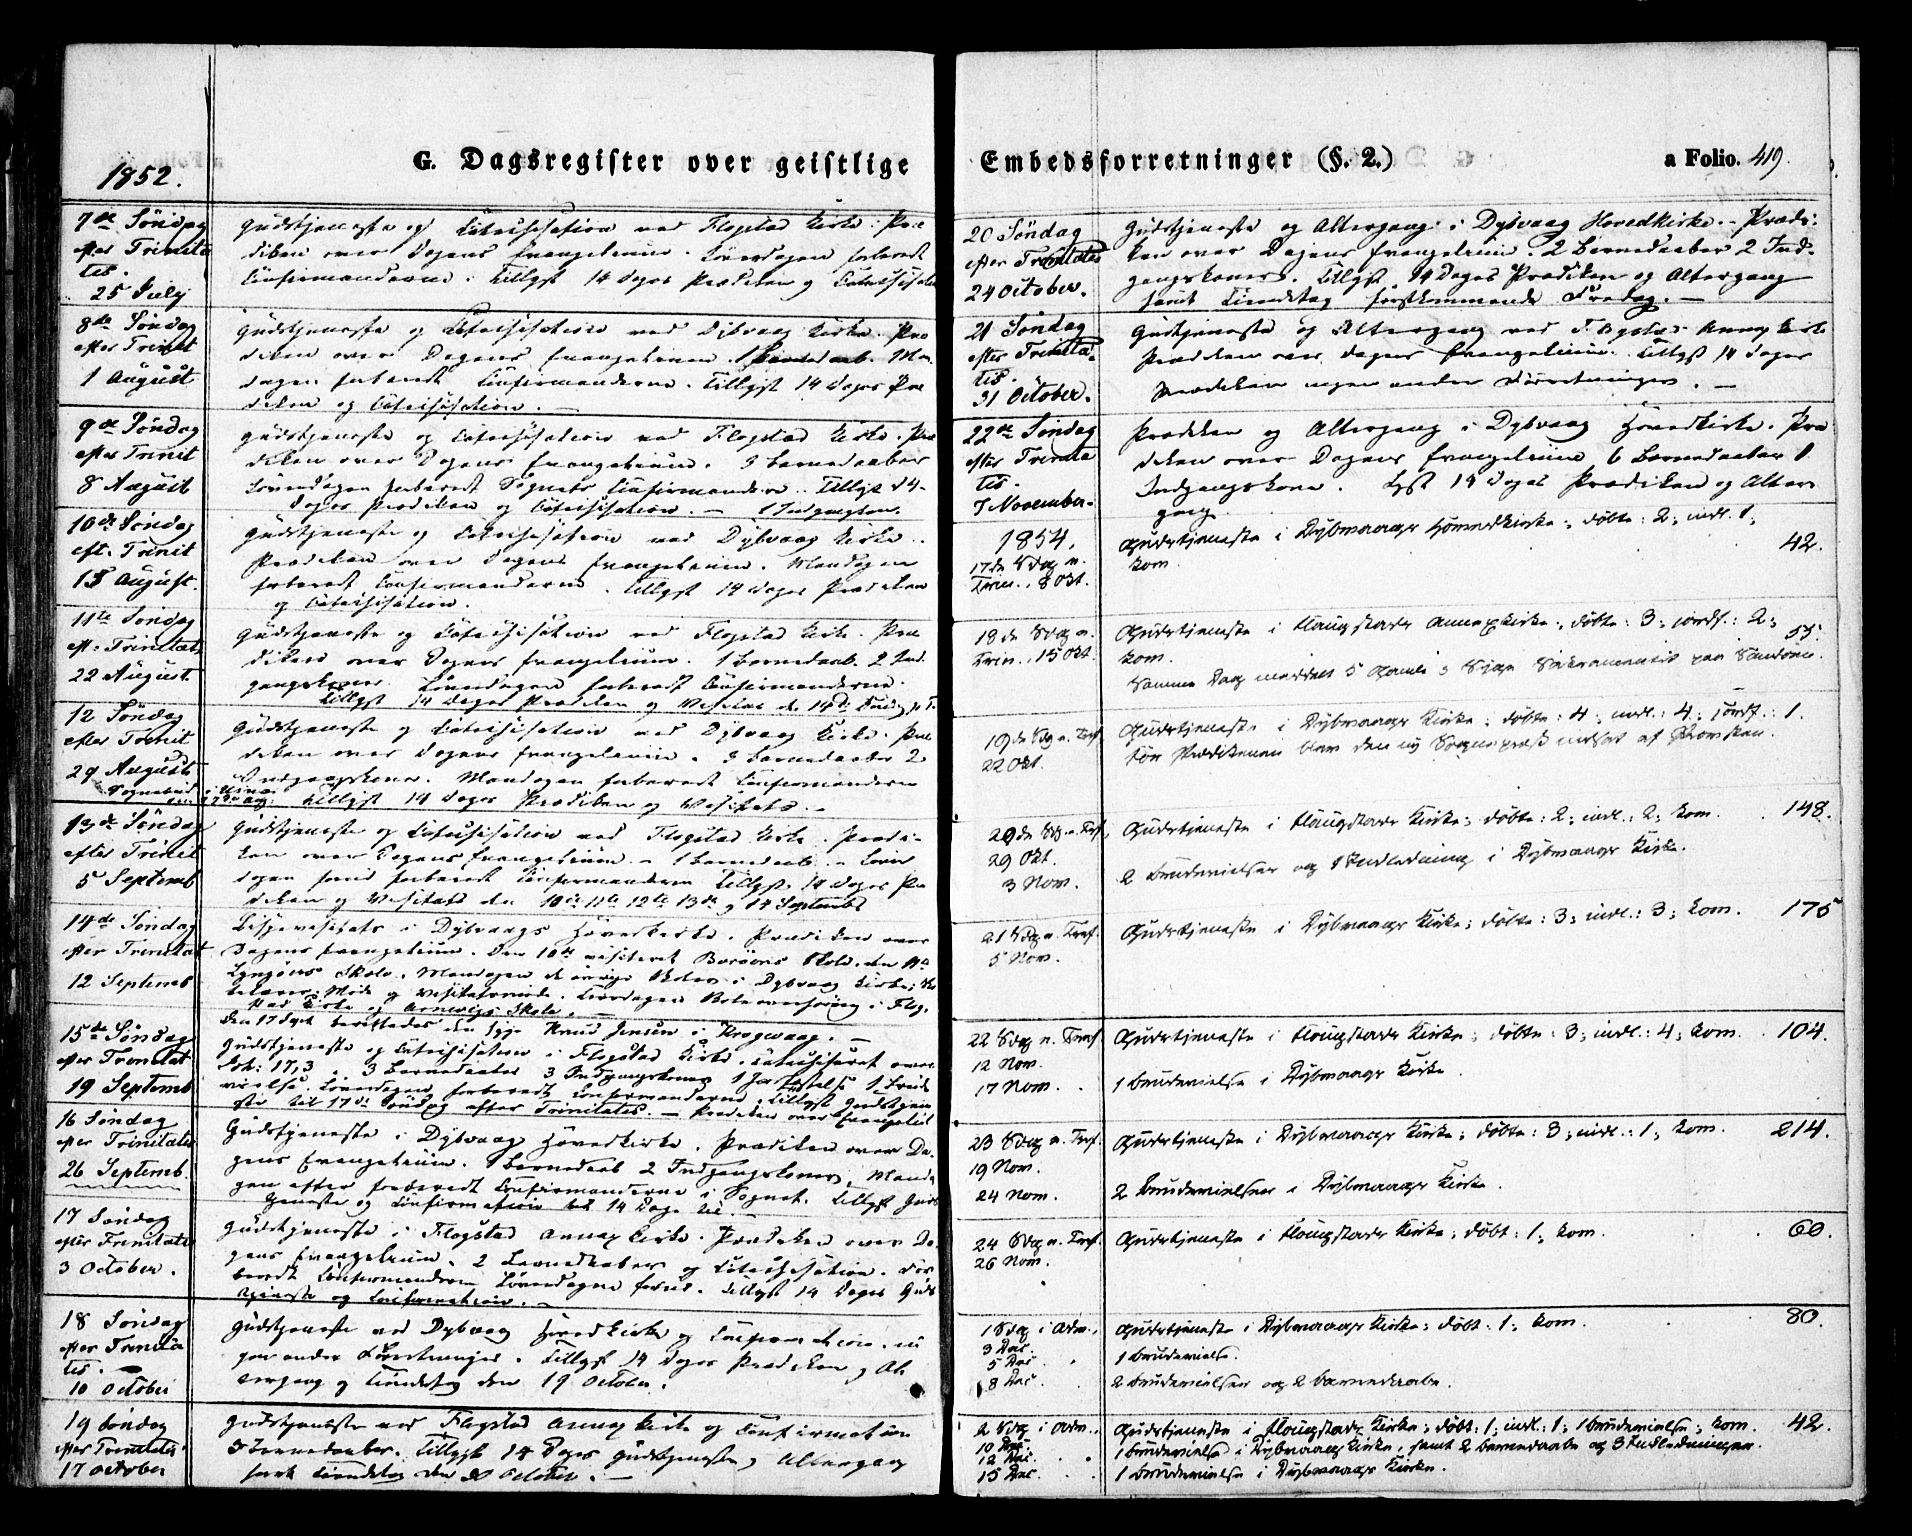 G. Dagsregister over geistlige
1852.
7de Søndag
efter Trinita
tis.
25 July
Gudstjeneste og Catechisation ved Flogstad Kirke. Præ
diken over Dagens Evangelium. Løverdagen forberedt
Confirmanderne. Tillyst 14 Dages Prædiken og Catechisation
8de Søndag
efter Trinit
1 August
Gudstjeneste og Catechisation ved Dybvaag Kirke. Præ
diken over Dagens Evangelium. 1 Barnedaab. Man
dagen forberedt Confirmanderne. Tillyst 14 Dages Præ
diken og Catechisation. —
9de Søndag
efter Trinit
8 August
Gudstjeneste og Catechisation ved Flogstad Kirke. Præ
diken over Dagens Evangelium. 3 Barnedaaber
Løverdagen forberedt Sognets Confirmandere. Tillyst 14
Dages Prædiken og Catechisation. — 1 Indgangskone.
10de Søndag
eft. Trinit
15 August.
Gudstjeneste og Catechisation ved Dybvaag Kirke.
Prædiken over Dagens Evangelium. Mandagen
forberedt Confirmanderne. Tillyst 14 Dages Prædiken
og Catechisation.
11te Søndag
eft. Trinitat
22 August.
Gudstjeneste og Catechisation ved Flogstad Kirke. Præ
diken over Dagens Evangelium. 1 Barnedaab. 2 Ind
gangskoner. Løverdagen forberedt Confirmanderne.
Tillyst 14 Dages Prædiken og Visitats d.
12 Søndag
efter Trinit
29 August
Gudstjeneste og Catechisation ved Dybvaag Kirke. Præ
diken over Dagens Evangelium. 3 Barnedaaber 2
Indgangskoner. Mandagen forberedt Confirmanderne
Tillyst 14 Dages Prædiken og Visitats. —
13de Søndag
efter Trinit
5 Septemb
Gudstjeneste og Catechisation ved Flogstad Kirke. Prædi
ken over Dagens Evangelium. — 1 Barnedaab. — Løver
dagen forud forberedt Confirmanderne Tillyst 14 Dages Præ
diken og Visitats den 10de 11te 12te 13de og 14 Septembr
14de Søndag
efter Trinitat
12 Septemb
Bispevisitats i Dybvaags Hovedkirke. Prædiken over
Dagens Evangelium. Den 10de visiteret Borøens Skole. den 11te
Lyngørs Skole. Mandagen de øvrige Skoler i Dybvaag Kirke;
Møde og Visitatsmøde. Tirsdagen Skoleoverhøring i Flog
stad Kirke og Arnevigs Skole. —
Den 17 Sept berettedes den syge Knud Jensen i Krogvaag. —
15de Søndag
efter Trinitat
19 Septemb
Gudstjeneste og Catechisation i Flogstad Kirke. Catechiseret over
17,3. 3 Barnedaaber 3 Indgangskoner 1 Jordfæstelse 1 Brude
vielse. Løverdagen forberedt Confirmanderne. Tillyst Gudstjene
ste til 17de Søndag efter Trinitatis. — Prædiken over Evangeliet
16 Søndag
efter Trinitatis
26 Septemb.
Gudstjeneste i Dybvaag Hovedkirke. Prædiken over Da
gens Evangelium. 1 Barnedaab 2 Indgangskoner, Manda
gen efter forberedt Confirmanderne i Sognet. Tillyst Guds
tjeneste og Confirmation 14 Dage til. —
17 Søndag
efter Trinitatis
3 October.
Gudstjeneste i Flogstad Annexkirke. Prædiken over Da
gens Evangelium. 2 Barnedaaber og Catechisation. For
beredt Confirmanderne Løverdagen forud. Tillyst 14 Dages Guds
tjeneste og Confirmation. —
18 Søndag
efter Trinita
tis.
10 October
Gudstjeneste ved Dybvaag Hovedkirke og Confirmation. in
gen anden Forretninger. Tillyst 14 Dages Prædiken og Al
tergang og Tiendetag den 19 October.
19 Søndag
efter Trinitatis
17 October
Gudstjeneste ved Flogstad Annexkirke og Confirmation
3 Barnedaaber. Tillyst 14 Dages Gudstjeneste og Altergang
samt Tiendetag den October. —
Embedsforretninger (§. 2.)
a Folio. 419.
20 Søndag
efter Trinitatis
24 October.
Gudstjeneste og Altergang i Dybvaag Hovedkirke. — Prædi
ken over Dagens Evangelium. 2 Barnedaaber 2 Ind
gangskoner. Tillyst 14 Dages Prædiken og Altergang
samt Tiendetag førstkommende Fredag. —
21 Søndag
efter Trinita
tis.
31 October.
Gudstjeneste og Altergang ved Flogstad Annexkirke
Prædiken over Dagens Evangelium. Tillyst 14 Dages
Prædiken ingen anden Forretninger. —
22de Søndag
efter Trinita
tis.
7 November.
Prædiken og Altergang i Dybvaag Hovedkirke. Præ
diken over Dagens Evangelium 6 Barnedaaber 1
Indgangskone. Lyst 14 Dages Prædiken og Alter
gang
1854.
17de Sdag e.
Trin., 8 Okt.
Gudstjeneste i Dybvaags Hovedkirke; døbte: 2; indl. 1;
kom. 42.
18de Sdag e.
Trin., 15 Okt.
Gudstjeneste i Flaugstads Annexkirke; døbte: 3; jordf.: 2;
kom. 55.
Samme Dag meddelt 5 Gamle og Syge Sakramentet paa Sandøen.
19de Sdg e. Tref.
22 Okt.
Gudstjeneste i Dybvaags Kirke; døbte: 4; indl.: 4; jordf.: 1.
Før Prædikenen blev den ny Sognepræst indsat af Provsten.
20de Sdg e. Tref.
29 Okt.
3 Nov.
Gudstjeneste i Flaugstads Kirke; døbte: 2; indl.: 2; kom. 148.
2 Brudevielser og 1 Indledning i Dybvaags Kirke.
21 Sdg e. Tref.
5 Nov.
Gudstjeneste i Dybvaags Kirke; døbte: 3; indl.: 3; kom. 175
22 Sdag e. Tref.
12 Nov.
17 Nov.
Gudstjeneste i Flaugstads Kirke; døbte: 3; indl.: 4; kom. 104.
1 Brudevielse i Dybvaags Kirke.
23 Sdag e. Tref.
19 Nov.
24 Nov.
Gudstjeneste i Dybvaags Kirke; døbte: 3; indl.: 1; kom. 214.
2 Brudevielser i Dybvaags Kirke.
24 Sdag e. Tref.
26 Nov.
Gudstjeneste i Flaugstads Kirke; døbt: 1; kom. 60.
1 Sdag i Adv.,
3 Dec.
5 Dec.
8 Dec.
Gudstjeneste i Dybvaags Kirke; døbt: 1; kom. 80.
1 Brudevielse.
2 Brudevielser og 2 Barnedaabe.
2 Sdag i Adv.,
10 Dec.
12 Dec.
15 Dec.
Gudstjeneste i Flaugstads Kirke; døbt: 1; indl.: 1; 1 Brudevielse; kom. 42.
1 Brudevielse i Dybvaags Kirke, samt 2 Barnedaabe og 3 Indledninger.
1 Brudevielse i Dybvaags Kirke.